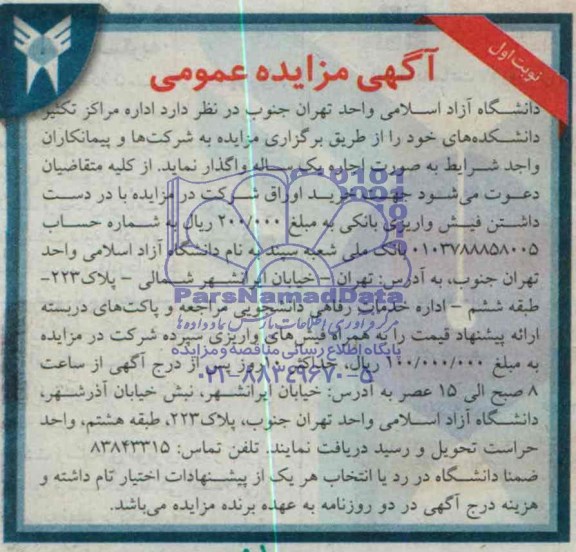 نوبت اول
آگهی مزایده عمومی
دانشگاه آزاد اسلامی واحد تهران جنوب در نظر دارد اداره مراکز تکثیر
دانشکده‌های خود را از طریق برگزاری مزایده به شرکت‌ها و پیمانکاران
واجد شرایط به صورت اجاره یک ساله واگذار نماید. از کلیه متقاضیان
دعوت می‌شود جهت خرید اوراق شرکت در مزایده با در دست
داشتن فیش واریزی بانکی به مبلغ ۲۰۰/۰۰۰ ریال به شماره حساب
۰۱۰۳۷۸۸۸۵۸۰۰۵ بانک ملی شعبه سپند به نام دانشگاه آزاد اسلامی واحد
تهران جنوب، به آدرس: تهران – خیابان ایرانشهر شمالی – پلاک ۲۲۳–
طبقه ششم – اداره خدمات رفاهی دانشجویی مراجعه و پاکت‌های دربسته
ارائه پیشنهاد قیمت را به همراه فیش های واریزی سپرده شرکت در مزایده
به مبلغ ۱۰۰/۰۰۰/۰۰۰ ریال، حداکثر ۱۰ روز پس از درج آگهی از ساعت
۸ صبح الی ۱۵ عصر به آدرس: خیابان ایرانشهر، نبش خیابان آذرشهر،
دانشگاه آزاد اسلامی واحد تهران جنوب، پلاک۲۲۳، طبقه هشتم، واحد
حراست تحویل و رسید دریافت نمایند. تلفن تماس: ۸۳۸۴۳۳۱۵
ضمنا دانشگاه در رد یا انتخاب هر یک از پیشنهادات اختیار تام داشته و
هزینه درج آگهی در دو روزنامه به عهده برنده مزایده می‌باشد.
ParsNamadData
مرکز فرآوری اطلاعات پارس نماد داده‌ها
پایگاه اطلاع رسانی مناقصه و مزایده
۰۲۱-۸۸۳۴۹۶۷۰-۵